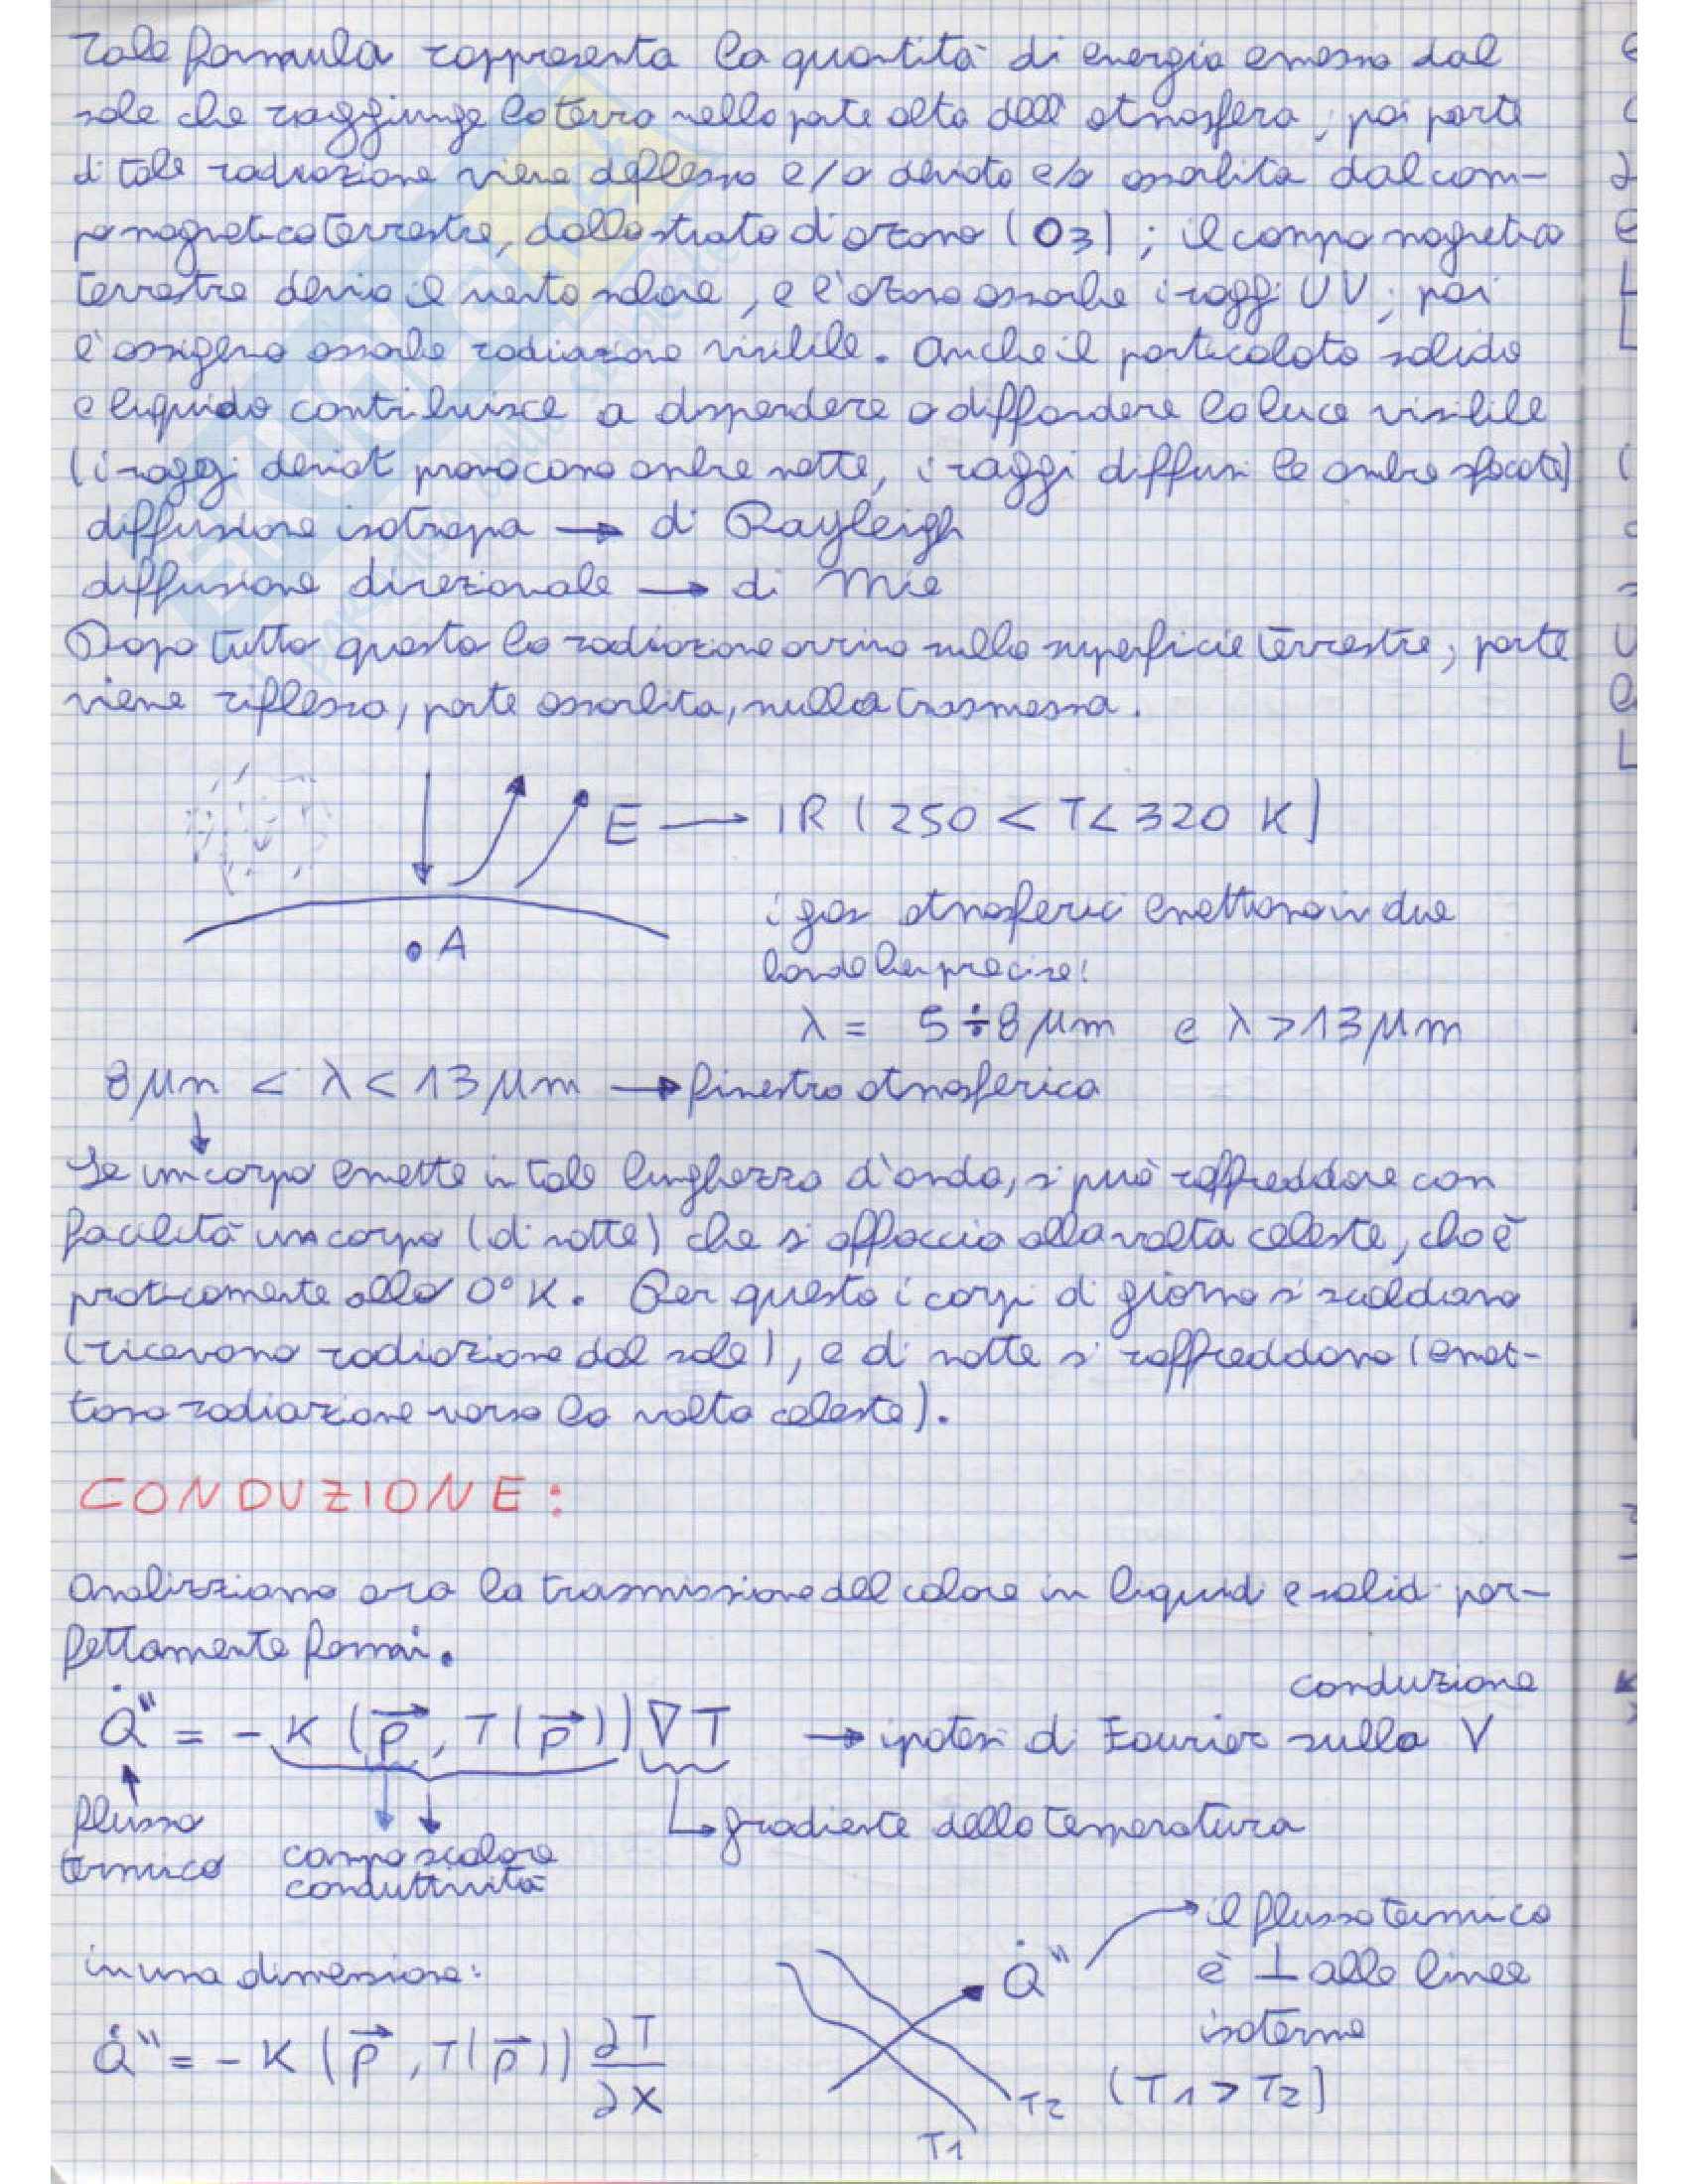 Tale formula rappresenta la quantità di energia emessa dal
sole che raggiunge la terra nella parte alta dell'atmosfera; poi parte
di tale radiazione viene deflessa e/o deviata e/o assorbita dal cam-
po magnetico terrestre, dallo strato d'ozono (O3); il campo magnetico
terrestre devia il vento solare, e l'ozono assorbe i raggi UV; poi
l'ossigeno assorbe radiazione visibile. Anche il particolato solido
e liquido contribuisce a disperdere o diffondere la luce visibile
(i raggi deviati provocano ombre nette, i raggi diffusi le ombre sfocate)
diffusione isotropa → di Rayleigh
diffusione direzionale → di Mie
Dopo tutto questo la radiazione arriva sulla superficie terrestre; parte
viene riflessa, parte assorbita, nulla trasmessa.
E → IR (250 < T < 320 K)
• A
i gas atmosferici emettono in due
bande ben precise:
λ = 5÷8 μm e λ > 13 μm
8 μm < λ < 13 μm → finestra atmosferica
Se un corpo emette in tale lunghezza d'onda, si può raffreddare con
facilità un corpo (di notte) che si affaccia alla volta celeste, che è
praticamente allo 0° K. Per questo i corpi di giorno si scaldano
(ricevono radiazione dal sole), e di notte si raffreddano (emet-
tono radiazione verso la volta celeste).
CONDUZIONE:
Analizziamo ora la trasmissione del calore in liquidi e solidi per-
fettamente fermi.
conduzione
Q̇" = - K (p⃗, T(p⃗)) ∇T → ipotesi di Fourier sulla V
flusso
termico
campo scalare
conduttività
gradiente della temperatura
in una dimensione:
Q̇" = - K (p⃗, T(p⃗)) ∂T/∂x
Q̇"
il flusso termico
è ⊥ alle linee
isoterme
T2 (T1 > T2)
T1